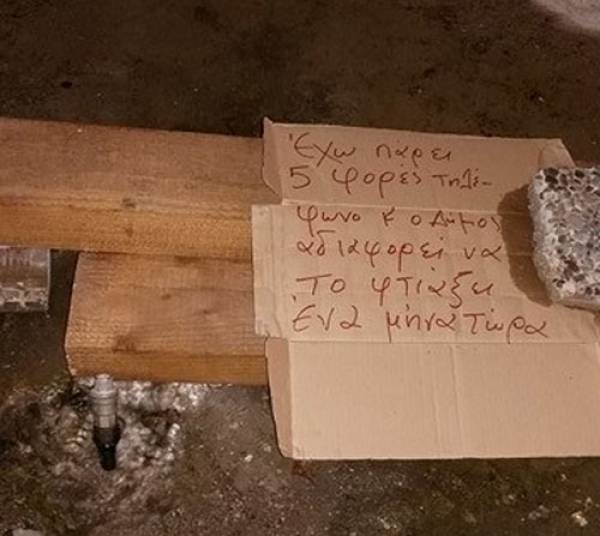 Έχω πάρει
5 φορές τηλέ-
φωνο κ ο Δήμος
αδιαφορεί να
Το φτιάξει
Ένα μήνα Τώρα